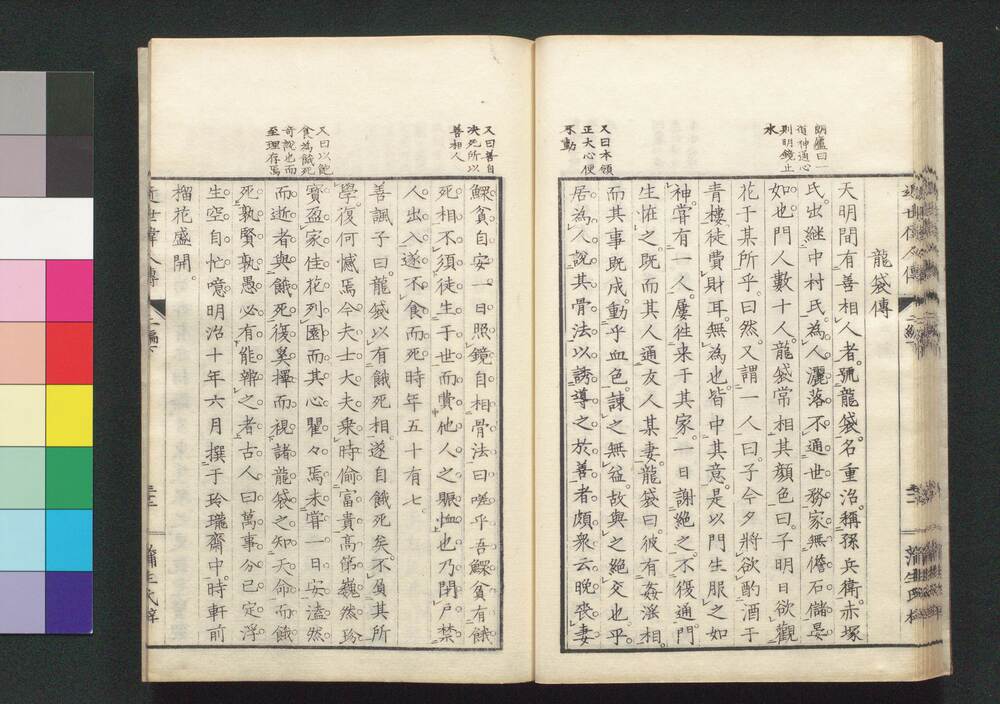 龍袋傳
天明間有善相人者。號龍袋。名重治。稱孫兵衛。赤塚
氏。出継中村氏。為人灑落不通世務。家無儋石儲晏
如也。門人數十人。龍袋常相其顔色曰。子明日欲觀
花于某所乎。曰然。又謂一人曰。子今夕將欲酌酒于
青樓。徒費財耳。無為也。皆中其意。是以門生服之如
神。甞有一人。屢徃来于其家。一日謝絶之。不復通門
生恠之。既而其人通友人某妻。龍袋曰。彼有姦淫相。
而其事既成。動乎血色。諫之無益。故與之絶交也。乎
居為人說其骨法。以誘導之於善者。頗衆云。晩喪妻
朗廬曰一
道神通心
則明鏡止
水
又曰本領
正大心便
不動
鰥貧自安。一日照鏡自相骨法曰。嗟乎吾鰥貧有餓
死相。不須徒生于世而費他人之賑恤也。乃閉户禁
人出入。遂不食而死。時年五十有七。
善諷子曰。龍袋以有餓死相。遂自餓死矣。不負其所
學。復何憾焉。今夫士大夫乗時偷富貴。高第巍然。珍
寳盈家。佳花列園。而其心瞿々焉。未甞一日安。溘然
而逝者。與餓死復奚擇。而視諸龍袋之知天命而餓
死。孰賢孰愚。必有能辨之者。古人曰。萬事分已定。浮
生空自忙。噫。明治十年六月撰于玲瓏齋中。時軒前
榴花盛開。
又曰善自
决死所以
善相人
又曰以飽
食為餓死
奇說也而
至理存焉
近世偉人傳
二編下
三十三
蒲生氏梓